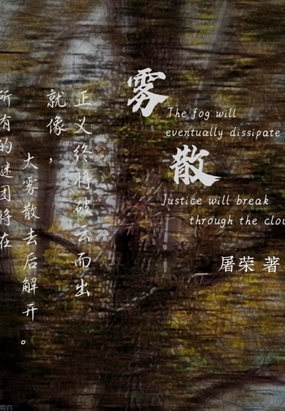 雾
散
The fog will
eventually dissipate
Justice will break
through the clou
屠荣 著
所有的谜团将在
大雾散去后解开。
就像，
正义终将破云而出